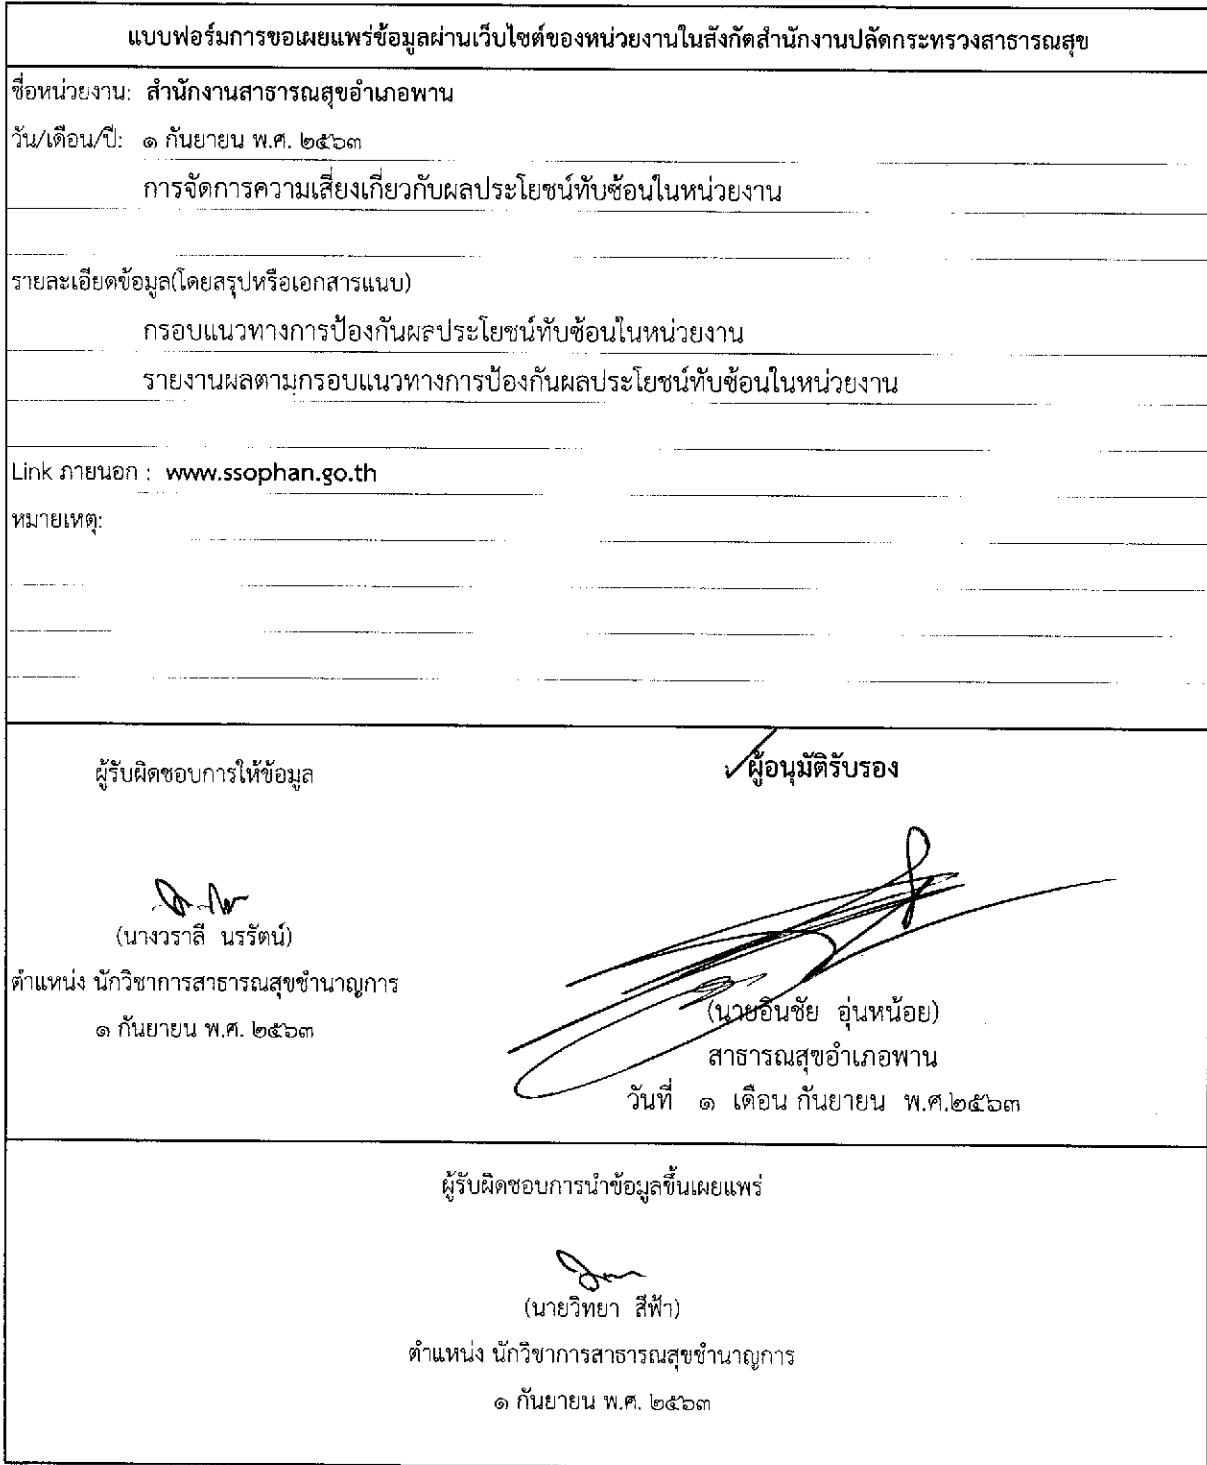 แบบฟอร์มการขอเผยแพร่ข้อมูลผ่านเว็บไซต์ของหน่วยงานในสังกัดสำนักงานปลัดกระทรวงสาธารณสุข
ชื่อหน่วยงาน: สำนักงานสาธารณสุขอำเภอพาน
วัน/เดือน/ปี: ๑ กันยายน พ.ศ. ๒๕๖๓
การจัดการความเสี่ยงเกี่ยวกับผลประโยชน์ทับซ้อนในหน่วยงาน
รายละเอียดข้อมูล(โดยสรุปหรือเอกสารแนบ)
กรอบแนวทางการป้องกันผลประโยชน์ทับซ้อนในหน่วยงาน
รายงานผลตามกรอบแนวทางการป้องกันผลประโยชน์ทับซ้อนในหน่วยงาน
Link ภายนอก : www.ssophan.go.th
หมายเหตุ:
ผู้รับผิดชอบการให้ข้อมูล
(นางวราลี นรรัตน์)
ตำแหน่ง นักวิชาการสาธารณสุขชำนาญการ
๑ กันยายน พ.ศ. ๒๕๖๓
ผู้อนุมัติรับรอง
(นายอินชัย อุ่นหน้อย)
สาธารณสุขอำเภอพาน
วันที่ ๑ เดือน กันยายน พ.ศ.๒๕๖๓
ผู้รับผิดชอบการนำข้อมูลขึ้นเผยแพร่
(นายวิทยา สีฟ้า)
ตำแหน่ง นักวิชาการสาธารณสุขชำนาญการ
๑ กันยายน พ.ศ. ๒๕๖๓